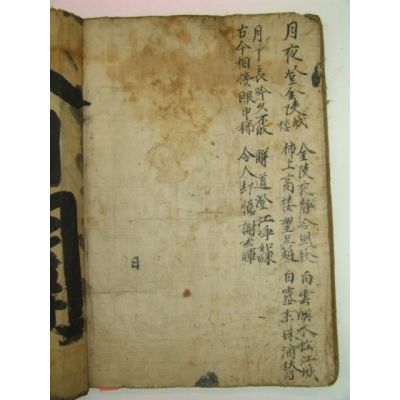 月夜登金陵城樓
金陵夜靜冷風 白雲映水松江城
上高樓望吳越 白露垂珠滴秋月
月下長吟久不 解道澄江淨如練
古今相接眼中稀 令人却憶謝玄暉
日